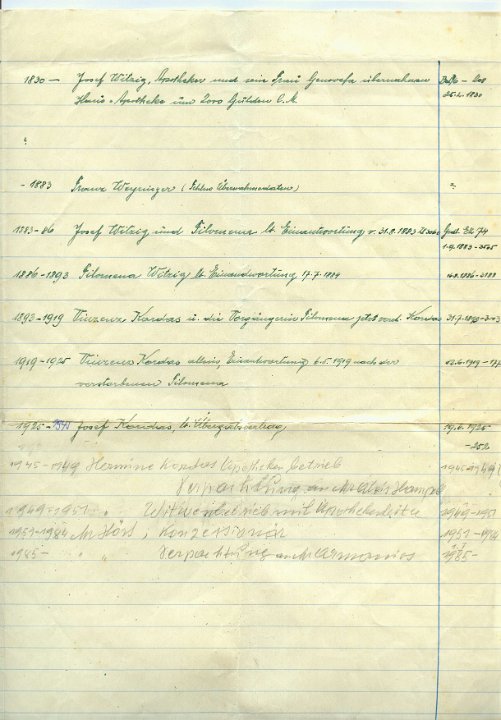 1830 — Josef Witzig, Apotheker und sein Frau Genovefa übernahmen
Haus u. Apotheke um 2000 Gulden C.M.
25.2.1830
?
- 1883 Franz (Fehlen Übernahmsdaten) ?
1883-86 Josef Witzig und Filomena lt. Einantwortung v. 31.8.1883
1.9.1883 -
1886-1893 Filomena Witzig lt. Einandwortung 17.7.
1893-1919 Vinzenz Kordas u. die Vorgängerin Filomena jetzt verh. Kordas
1919-1925 Vinzenz Kordas allein, Einantwortung 6.5.1919 nach der
verstorbenen Filomena
1925-1945 Josef Kordas, lt. Übergabsvertrag, 19.6.1925
- 252
1945-1949 Hermine Kordas Apothekenbetrieb 1945-1949
Verpachtung an Mr. Hampl
1949-1951 " Witwenbetrieb mit Apothekenleiter 1949-1951
1951-1984 Mr Hörst, Konzessionär 1951-1984
1985- " " Verpachtung an Mr. 1985-